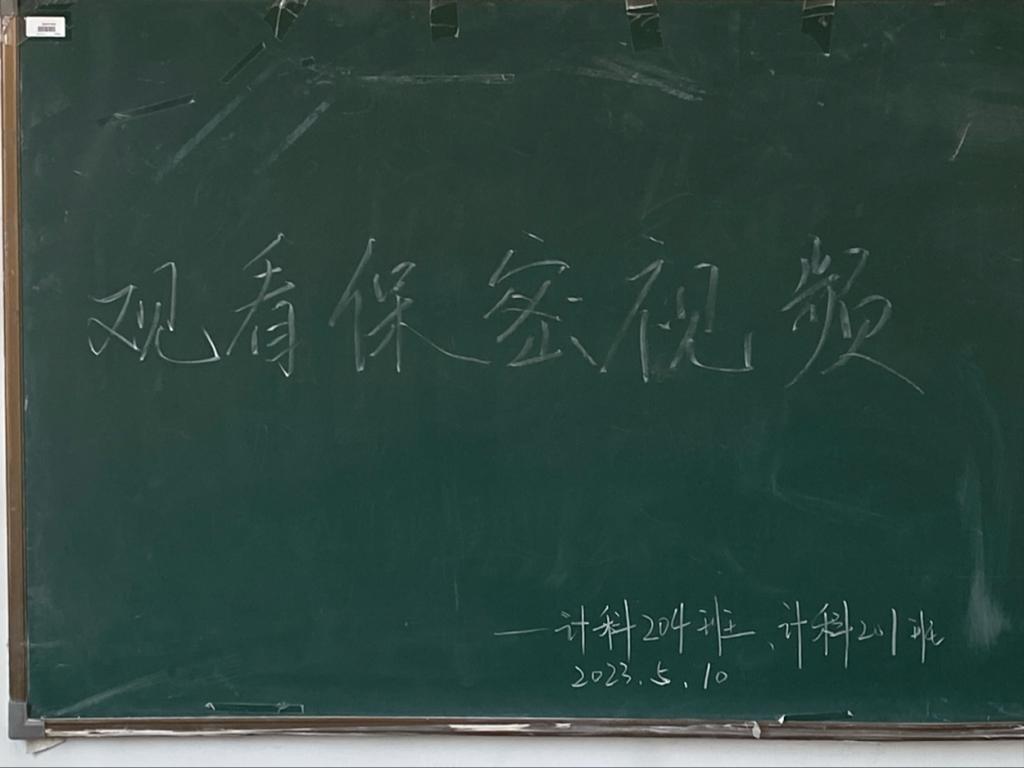 观看保密视频
—计科204班、计科201班
2023.5.10